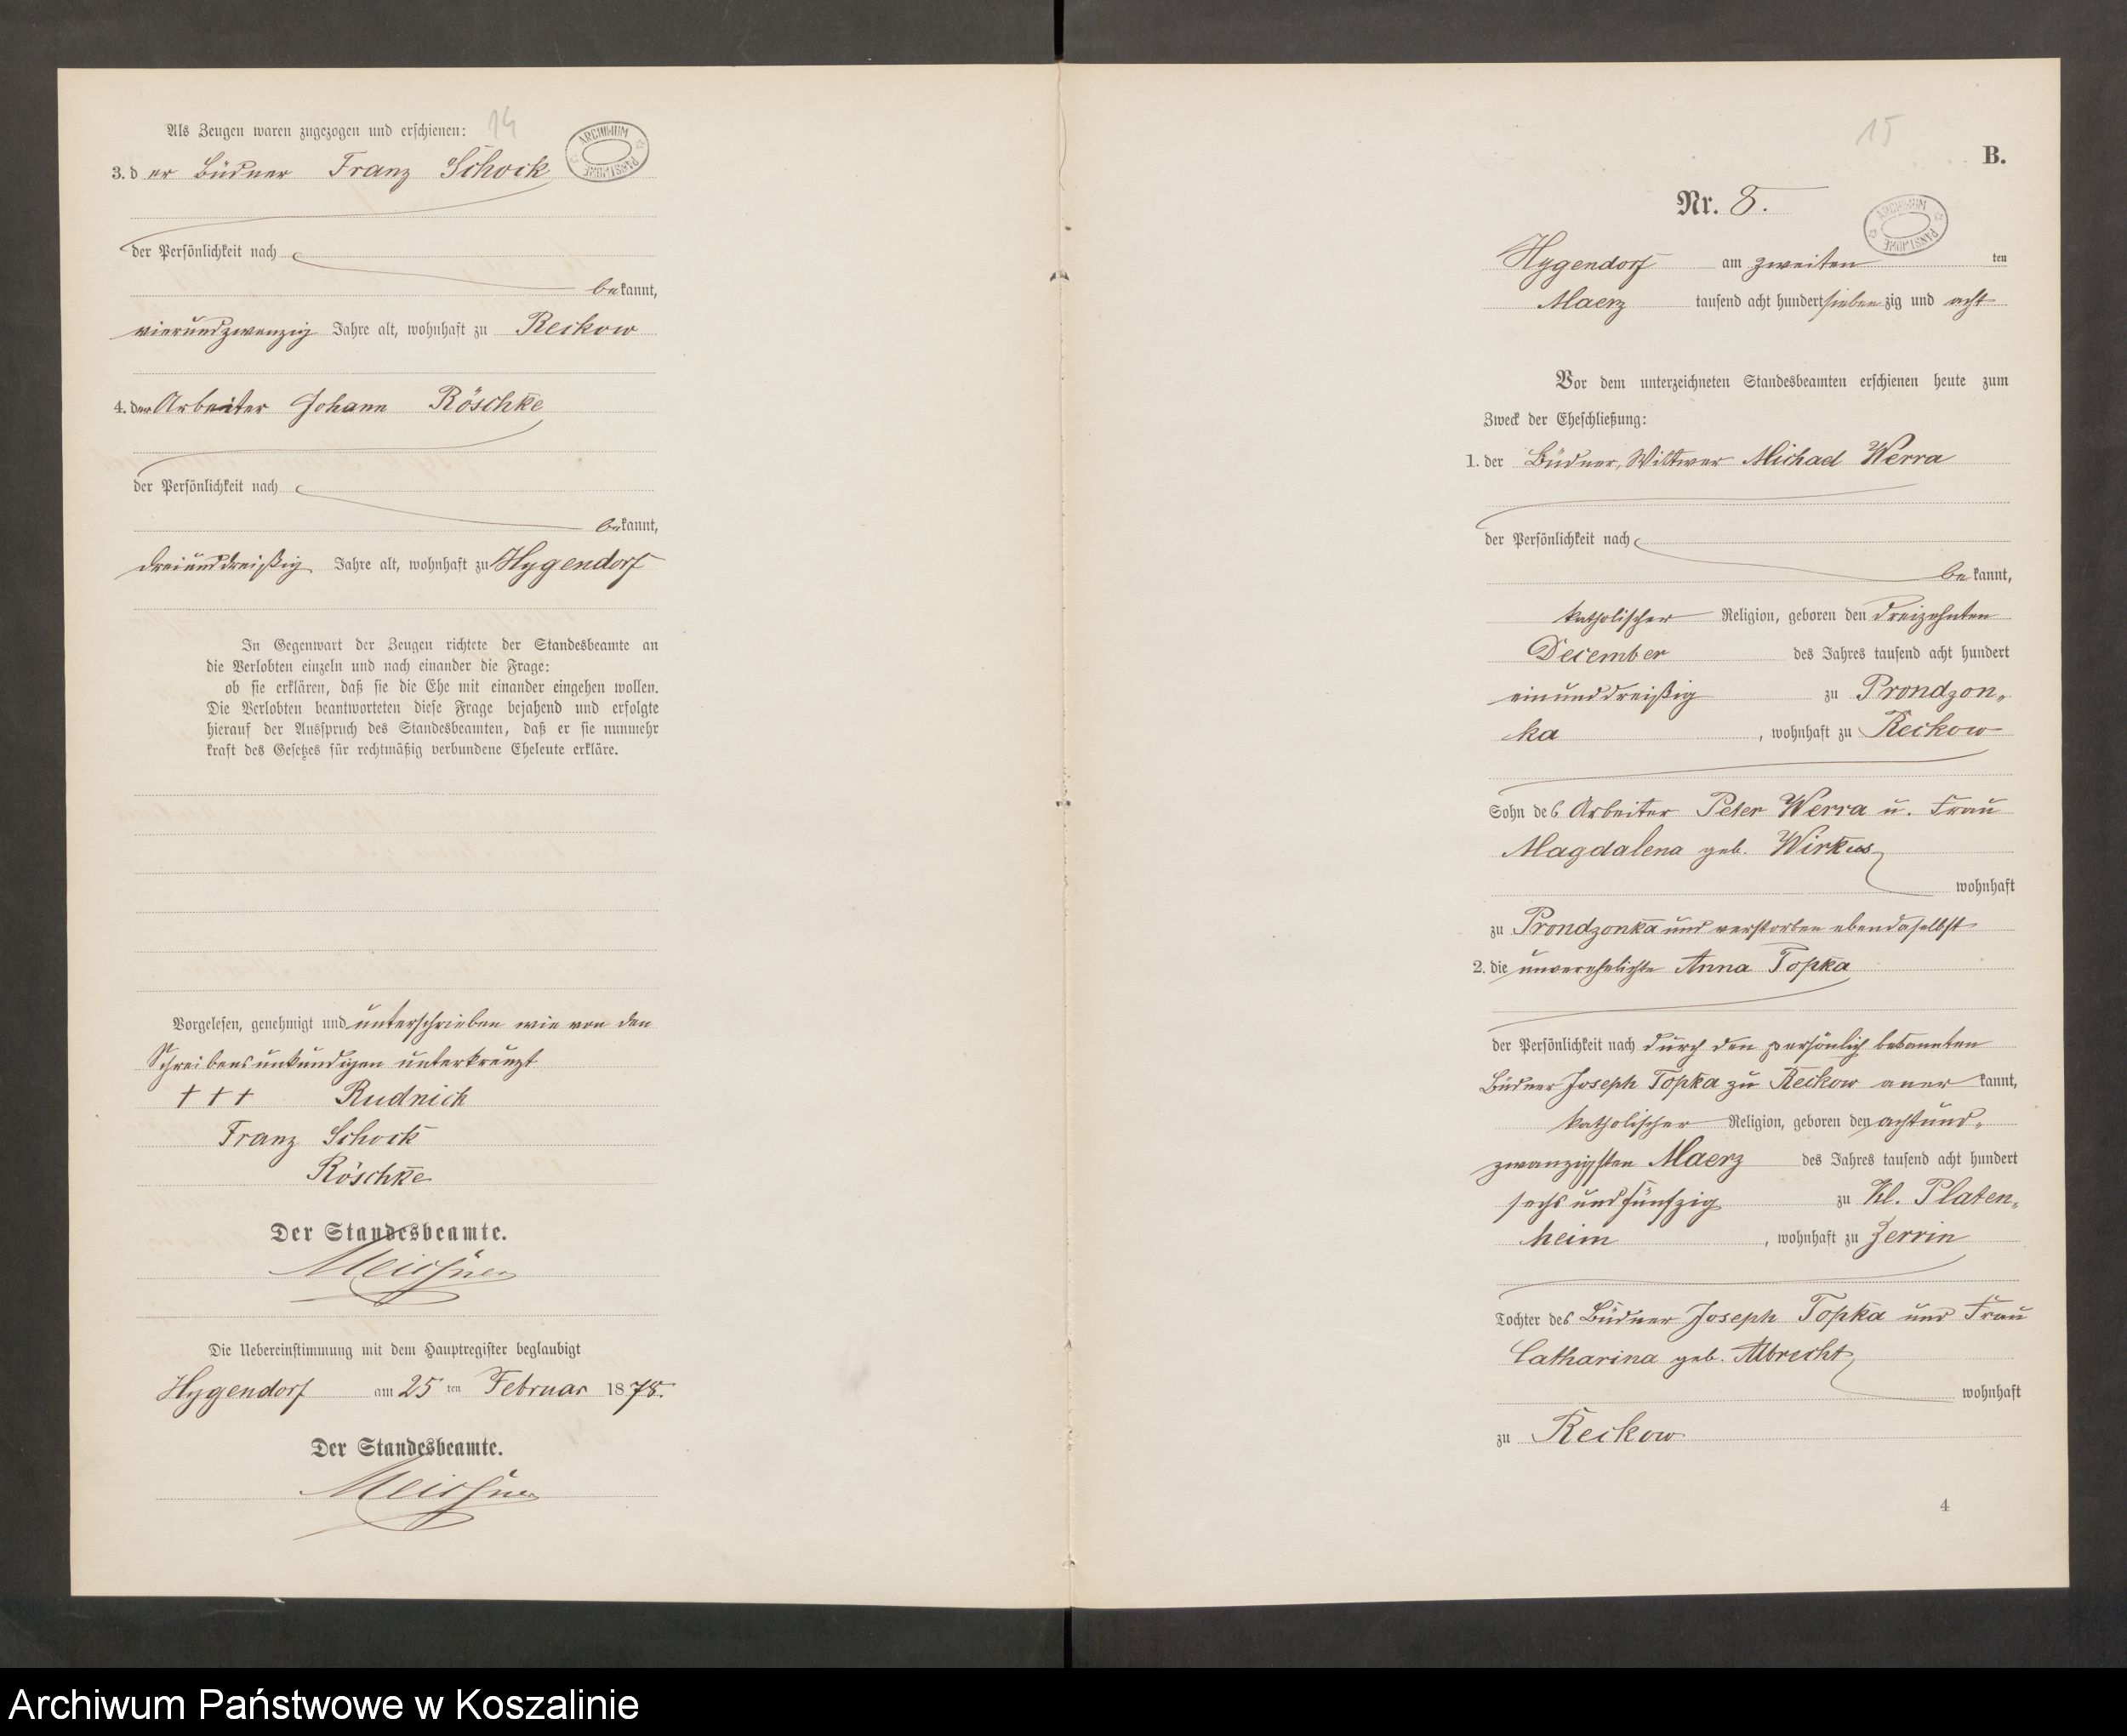 14
Als Zeugen waren zugezogen und erschienen:
ARCHIWUM PAŃSTWOWE
3. der Büdner Franz Schock
der Persönlichkeit nach
bekannt,
vierundzwanzig Jahre alt, wohnhaft zu Reckow
4. der Arbeiter Johann Röschke
der Persönlichkeit nach
bekannt,
dreiunddreißig Jahre alt, wohnhaft zu Hygendorf
In Gegenwart der Zeugen richtete der Standesbeamte an
die Verlobten einzeln und nach einander die Frage:
ob sie erklären, daß sie die Ehe mit einander eingehen wollen.
Die Verlobten beantworteten diese Frage bejahend und erfolgte
hierauf der Ausspruch des Standesbeamten, daß er sie nunmehr
kraft des Gesetzes für rechtmäßig verbundene Eheleute erkläre.
Vorgelesen, genehmigt und unterschrieben wie von den
Schreibensunkundigen unterkreuzt
+ + + Rudnick
Franz Schock
Röschke
Der Standesbeamte.
Meissner
Die Uebereinstimmung mit dem Hauptregister beglaubigt
Hygendorf am 25 ten Februar 1878.
Der Standesbeamte.
Meissner
15
B.
Nr. 8.
ARCHIWUM PAŃSTWOWE
Hygendorf am zweiten ten
Maerz tausend acht hundert siebenzig und acht
Vor dem unterzeichneten Standesbeamten erschienen heute zum
Zweck der Eheschließung:
1. der Büdner, Wittwer Michael Werra
der Persönlichkeit nach
bekannt,
katholischer Religion, geboren den dreizehnten
December des Jahres tausend acht hundert
einunddreißig zu Prondzon-
ka, wohnhaft zu Reckow
Sohn des Arbeiter Peter Werra u. Frau
Magdalena geb. Wirkus
wohnhaft
zu Prondzonka und verstorben ebendaselbst
2. die unverehelichte Anna Topka
der Persönlichkeit nach durch den persönlich bekannten
Büdner Joseph Topka zu Reckow anerkannt,
katholischer Religion, geboren den achtund-
zwanzigsten Maerz des Jahres tausend acht hundert
sechs und fünfzig zu Kl. Platen-
heim, wohnhaft zu Zerrin
Tochter des Büdner Joseph Topka und Frau
Catharina geb. Albrecht
wohnhaft
zu Reckow
4
Archiwum Państwowe w Koszalinie